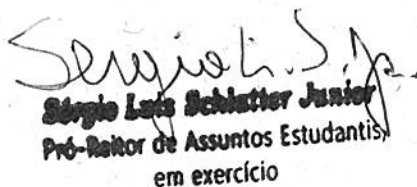 Sérgio L. S. Jr.
Sérgio Luis Schlatter Junior
Pró-Reitor de Assuntos Estudantis,
em exercício